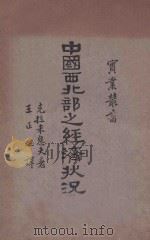 實業叢書
中國西北部之經濟狀況
克拉米息夫著
王正旺譯